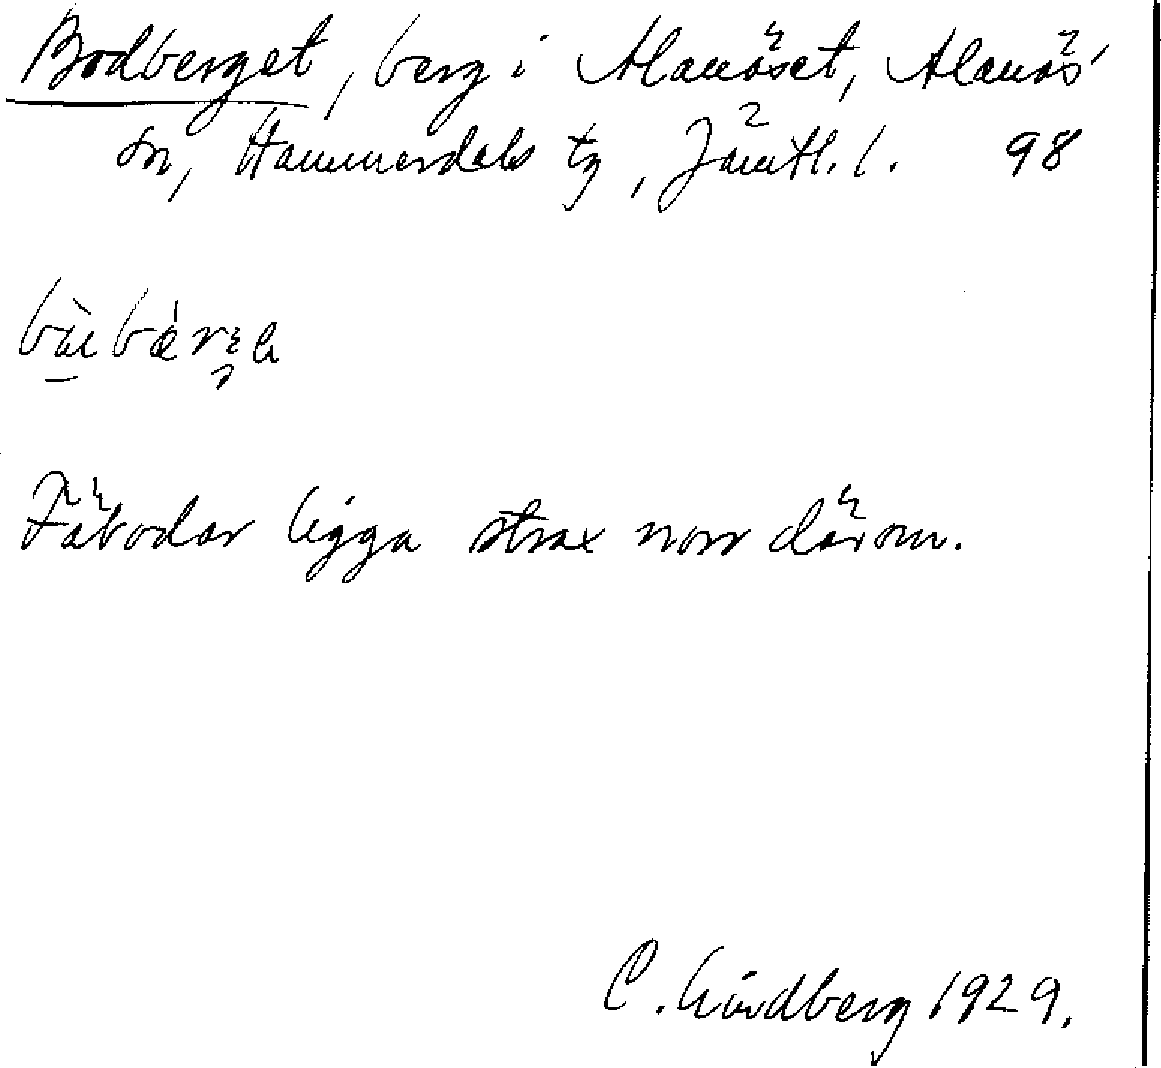 Bodberget, berg i Alanäset, Alanäs
sn, Hammerdals tg, Jämtl. l. 98
Fäbodar ligga strax norr därom.
C. Lindberg 1929.